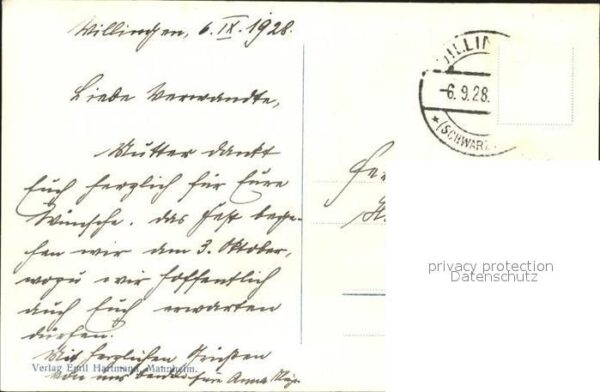 Villingen, 6. IX. 1928.
Liebe Verwandte,
Mutter dankt
Euch herzlich für Eure
Wünsche. Das Fest bege-
hen wir am 3. Oktober,
wozu wir hoffentlich
auch Euch erwarten
dürfen.
Mit herzlichen Grüßen
von uns beiden Eure Anna
Verlag Emil Hartmann, Mannheim.
VILLIN
-6.9.28.
*(SCHWARZ
privacy protection
Datenschutz